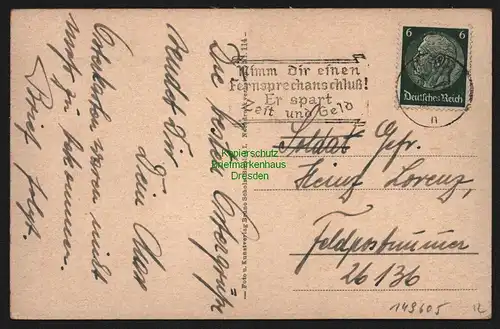 Die besten Ostergrüße
sendet Dir
Dein
Osterkarten waren nicht
mehr zu bekommen.
Brief folgt.
Nimm Dir einen
Fernsprechanschluß!
Er spart
Zeit und Geld
6 6
Deutsches Reich
n
Soldat Gefr.
Heinz Lorenz,
Feldpostnummer
26136
149605 12
Kopierschutz
Briefmarkenhaus
Dresden
Foto u. Kunstverlag